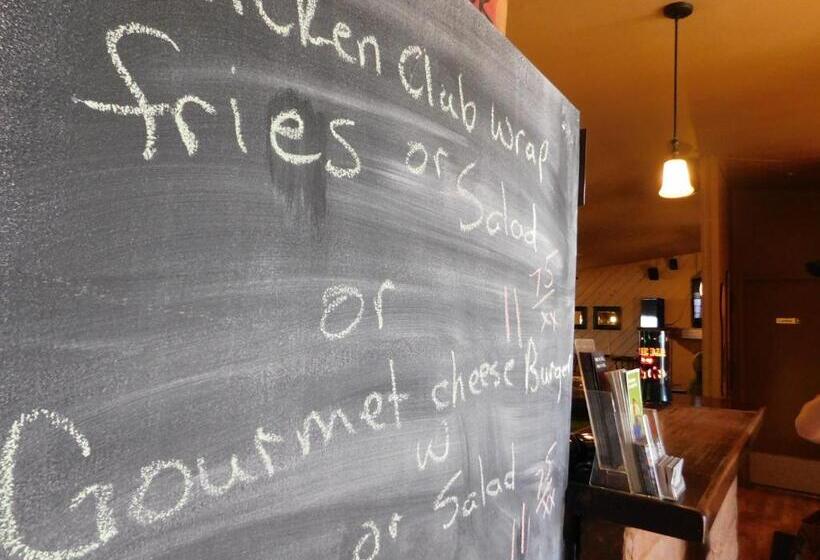 icken Club Wrap
fries or Salad
or
11 75/xx
Gourmet cheese Burger
w
or Salad
11 75/xx